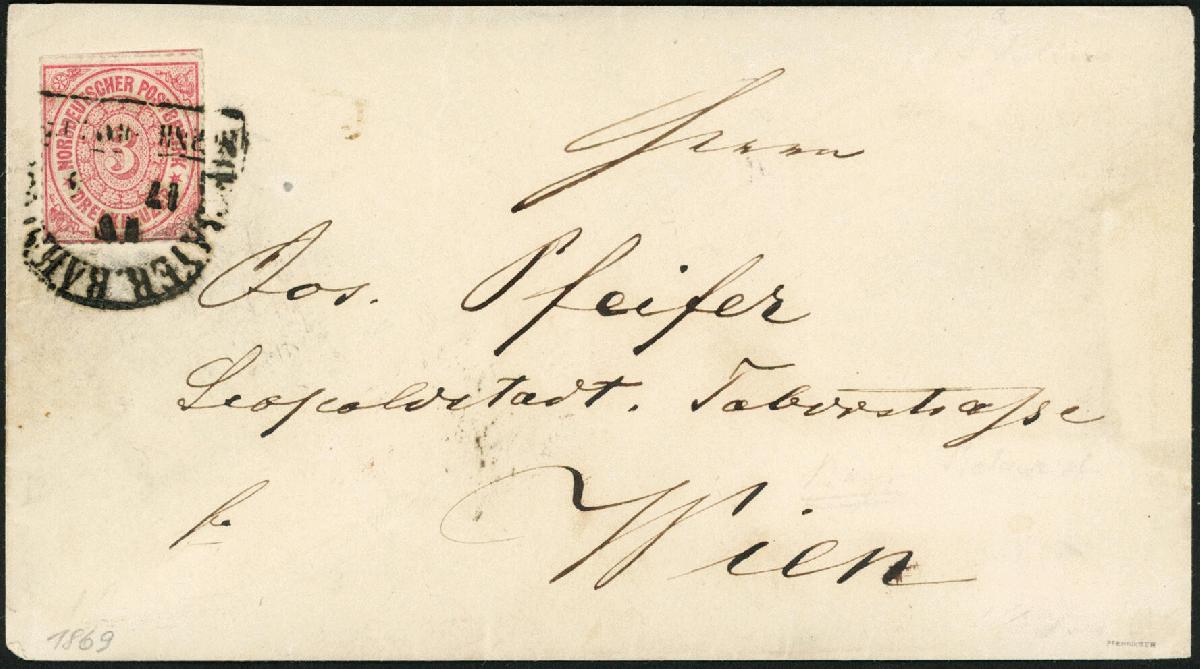 NORDDEUTSCHER POSTBEZIRK
3
Herrn
Jos. Pfeifer
Leopoldstadt. Taborstrasse
fr.
Wien
1869